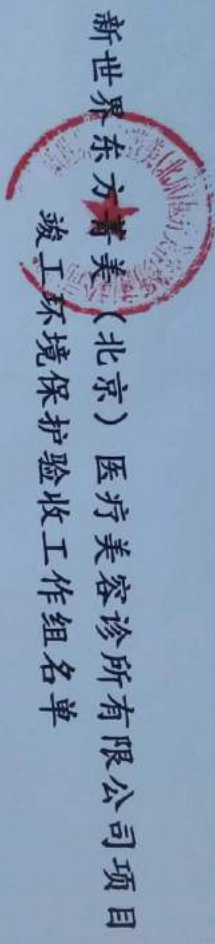 新世界东方菁美（北京）医疗美容诊所有限公司项目
竣工环境保护验收工作组名单